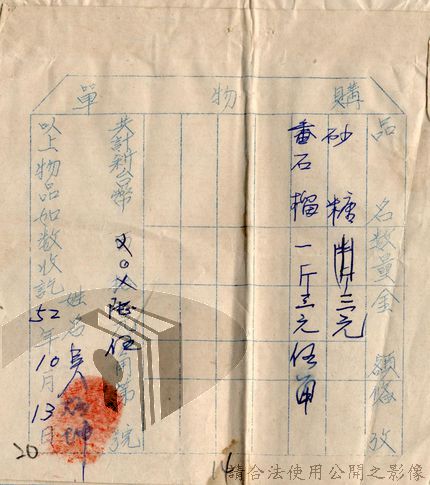 購物單
品名數量金額條攷
砂糖 半斤 三元
番石榴 一斤 三元伍角
共計新台幣 X〇X陸元伍角 第 號
以上物品如數收訖
姓名 吳 坤
52年10月13日
20
14
請合法使用公開之影像